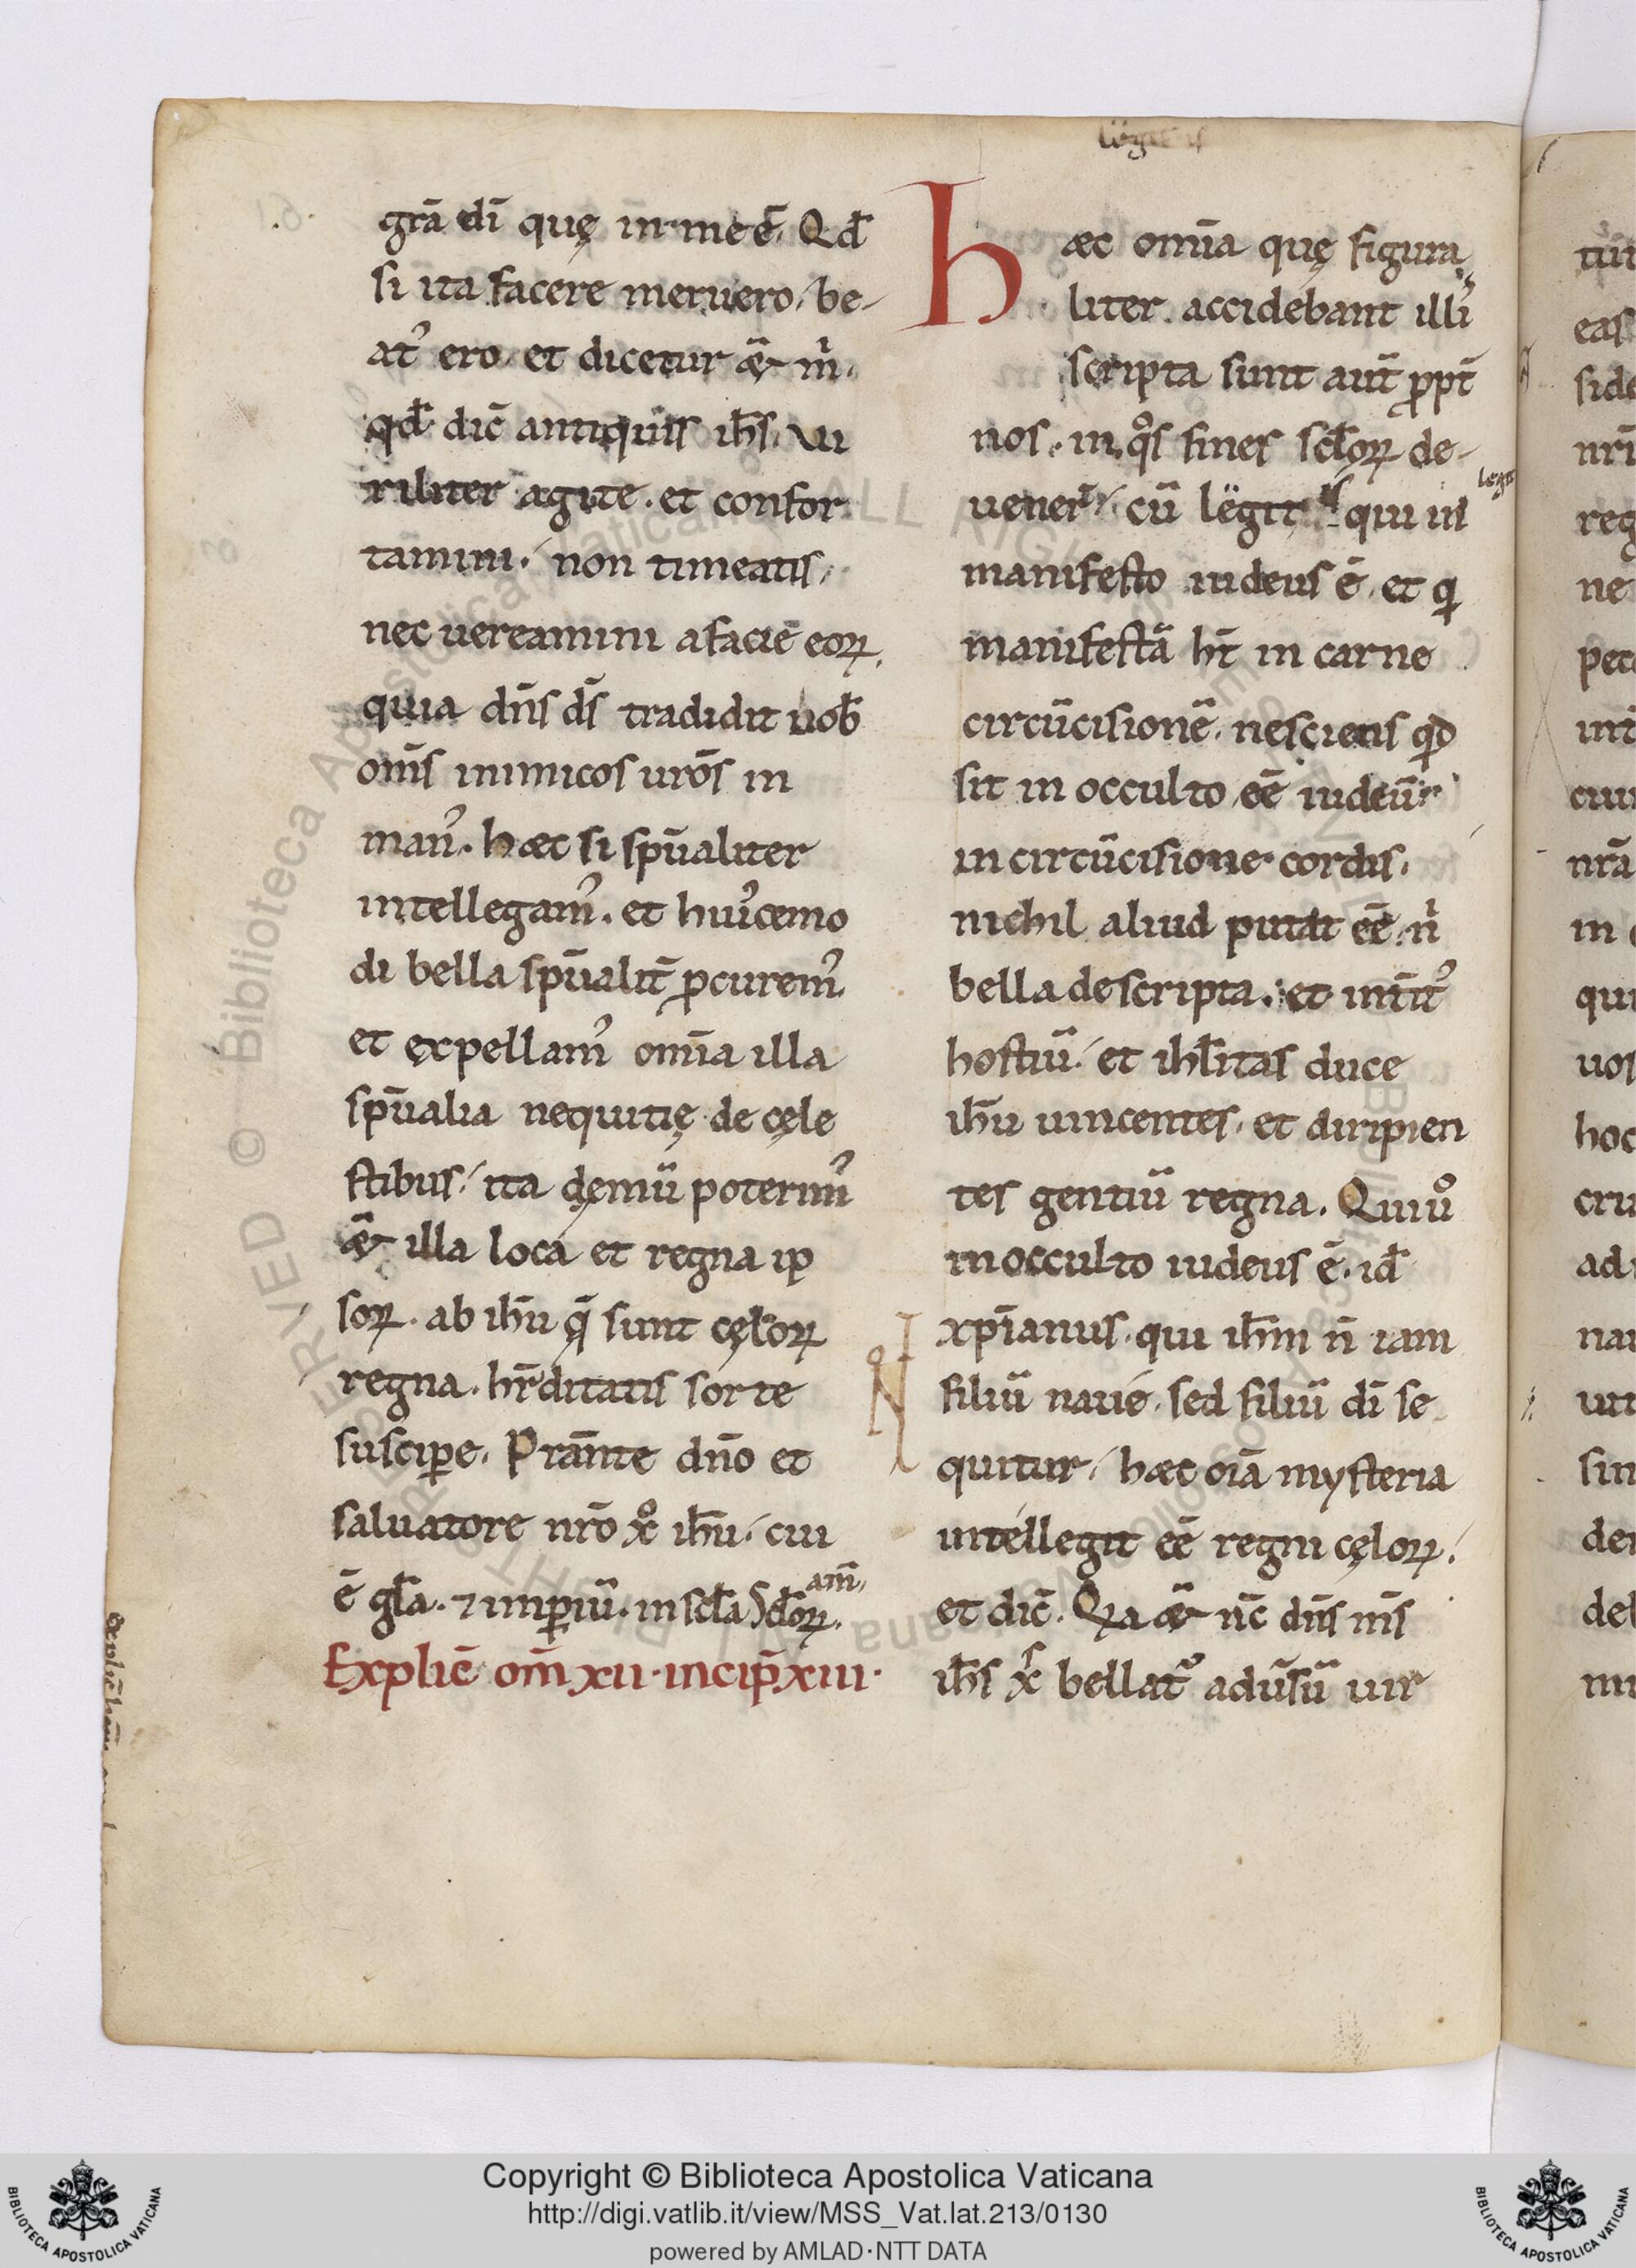 grā dī quę in me ē. Qđ
si ita facere meruero, be-
at᾽ ero. et dicetur & m̄.
qđ dic̄ antiquus ihs̄. Vi
riliter agite. et confor
tamini. non timeatis,
nec uereamini a facie eoꝝ.
quia dn̄s ds̄ tradidit uob̄
om̄s inimicos uros̄ in
man᾽. hæc si sp̄ualiter
intellegam᾽. et hui᾽cemo
di bella sp̄ualit̄ ꝓcurem᾽.
et expellam᾽ omīa illa
sp̄ualia nequitię de cęle
stibus. ita demū poterim᾽
& illa loca et regna ip
soꝝ. ab ihū q̄ sunt cęloꝝ
regna. hr̄ditatis sorte
suscipe. Prān̄te dn̄o et
saluatore nr̄o xo ihū. cui
ē gl̄a. ⁊ impiū. in scl̄a scl̄oꝝ. am̄.
Explic̄ om̄ xii. incip̄ xiii.
legit is
hæc omīa quę figura
liter accidebant illi᾽
scripta sunt aut̄ ꝓpt̄
nos. in qos fines scl̄oꝝ de-
uener̄. cū legit is qui in
legit
manifesto iudeus ē. et q
manifestā ht̄ in carne
circūcisionē. nesciens qd
sit in occulto eē iudeū
in circūcisione cordis.
nichil aliud putat eē n̄
bella descripta. et int̄it᾽
hostiū. et ihl̄itas duce
ihū uincentes. et diripien
tes gentiū regna. Qui uo
in occulto iudeus ē. id̄
xp̄ianus. qui ihm̄ n̄ iam
filiū naue. sed filiū dī se
quitur. hæc oīa mysteria
intellegit eē regni cęloꝝ.
et dic̄. Qa & nc̄ dn̄s m̄s
ihs̄ xs bellat᾽ adūsū uir
Copyright © Biblioteca Apostolica Vaticana
http://digi.vatlib.it/view/MSS_Vat.lat.213/0130
powered by AMLAD·NTT DATA
BIBLIOTECA APOSTOLICA VATICANA
BIBLIOTECA APOSTOLICA VATICANA